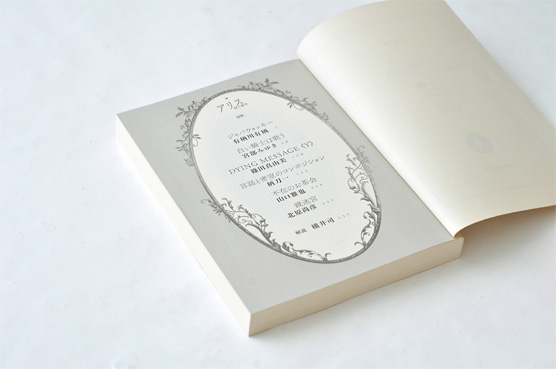 アリス
目次
ジャバウォッキー
有栖川有栖
白い騎士は歌う
宮部みゆき
DYING MESSAGE《Y》
篠田真由美
言語と密室のコンポジション
柄刀一
不在のお茶会
山口雅也
鏡迷宮
北原尚彦
解説 横井司